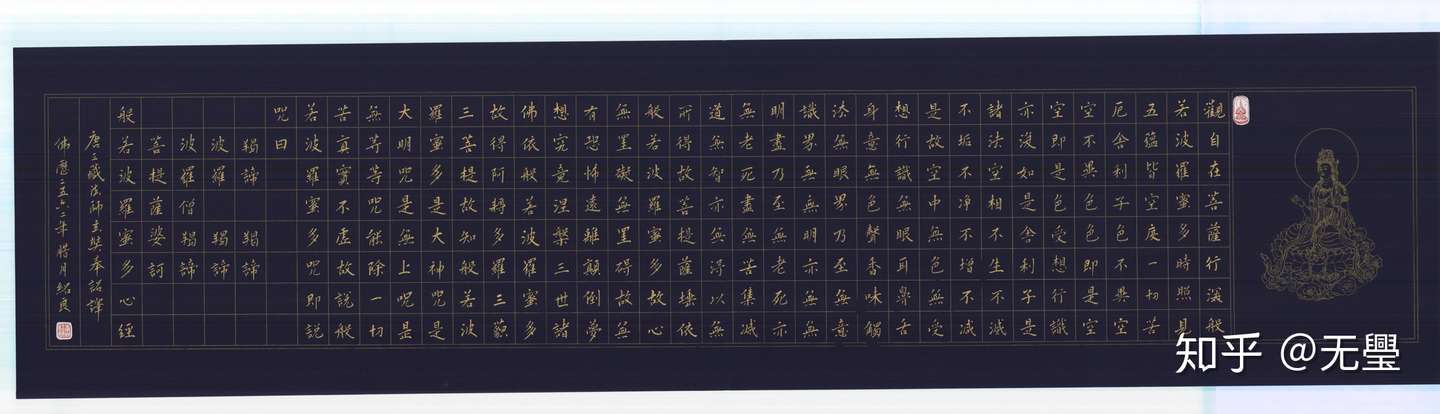 觀自在菩薩行深般
若波羅蜜多時照見
五蘊皆空度一切苦
厄舍利子色不異空
空不異色色即是空
空即是色受想行識
亦復如是舍利子是
諸法空相不生不滅
不垢不净不增不减
是故空中無色無受
想行識無眼耳鼻舌
身意無色聲香味觸
法無眼界乃至無意
識界無無明亦無無
明盡乃至無老死亦
無老死盡無苦集滅
道無智亦無得以無
所得故菩提薩埵依
般若波羅蜜多故心
無罣礙無罣碍故無
有恐怖遠離顛倒夢
想究竟涅槃三世諸
佛依般若波羅蜜多
故得阿耨多羅三藐
三菩提故知般若波
羅蜜多是大神咒是
大明咒是無上咒是
無等等咒能除一切
苦真實不虛故說般
若波羅蜜多咒即說
咒曰
羯諦 羯諦
波羅 羯諦
波羅僧羯諦
菩提薩婆訶
般若波羅蜜多心經
唐三藏法師玄奘奉詔譯
佛曆二五六二年腊月紹良
知乎 @无璺